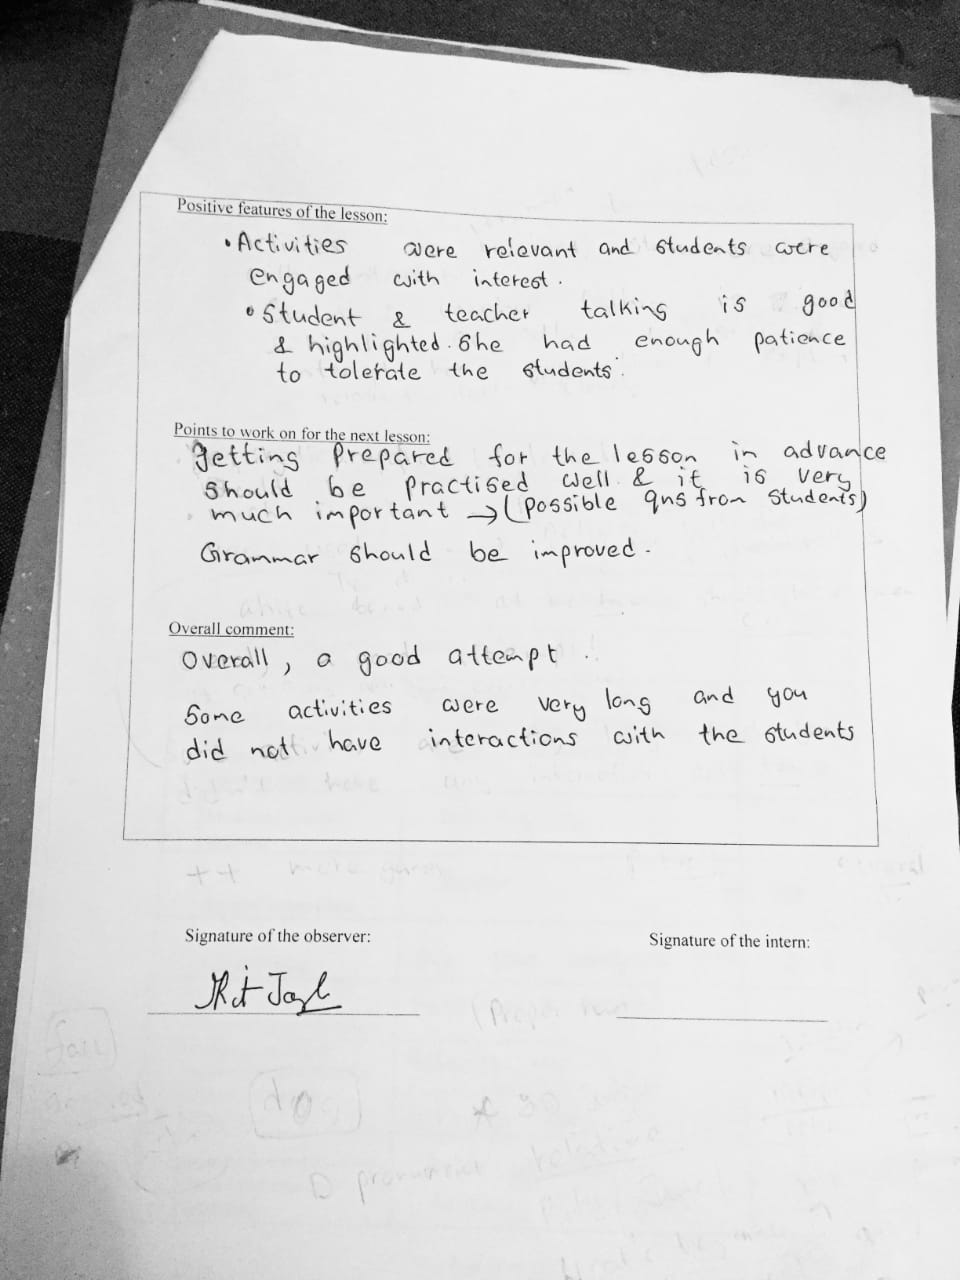 Positive features of the lesson:
• Activities were relevant and students were
engaged with interest.
• Student & teacher talking is good
& highlighted. She had enough patience
to tolerate the students.
Points to work on for the next lesson:
Getting prepared for the lesson in advance
should be practised well & it is very
much important → (possible qns from students)
Grammar should be improved.
Overall comment:
Overall, a good attempt.
Some activities were very long and you
did not have interactions with the students
Signature of the observer:
Signature of the intern: